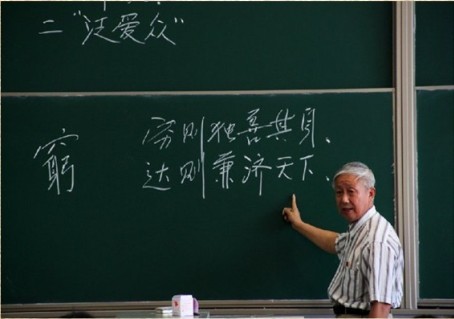 二“泛爱众”
窮
穷则独善其身、
达则兼济天下、